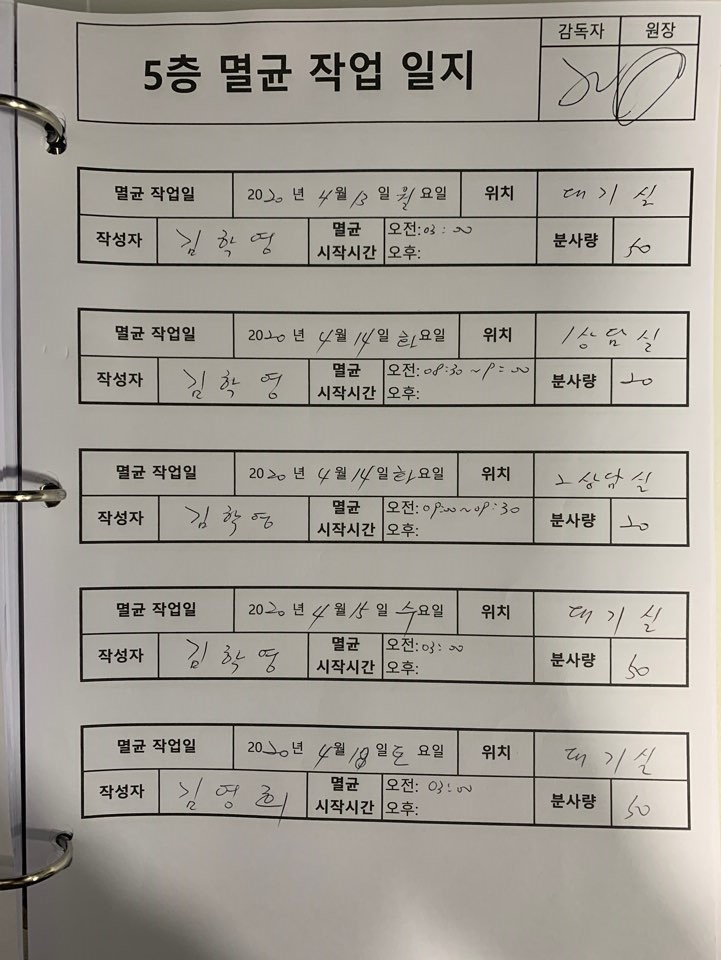 감독자 원장
5층 멸균 작업 일지
멸균 작업일 2020년 4월 13일 월요일 위치 대기실
작성자 김학영 멸균 시작시간 오전: 03:00 분사량 50
오후:
멸균 작업일 2020년 4월 14일 화요일 위치 1상담실
작성자 김학영 멸균 시작시간 오전: 08:30~9:00 분사량 20
오후:
멸균 작업일 2020년 4월 14일 화요일 위치 2상담실
작성자 김학영 멸균 시작시간 오전: 09:00~09:30 분사량 20
오후:
멸균 작업일 2020년 4월 15일 수요일 위치 대기실
작성자 김학영 멸균 시작시간 오전: 03:00 분사량 50
오후:
멸균 작업일 2020년 4월 18일 토요일 위치 대기실
작성자 김영희 멸균 시작시간 오전: 03:00 분사량 50
오후: